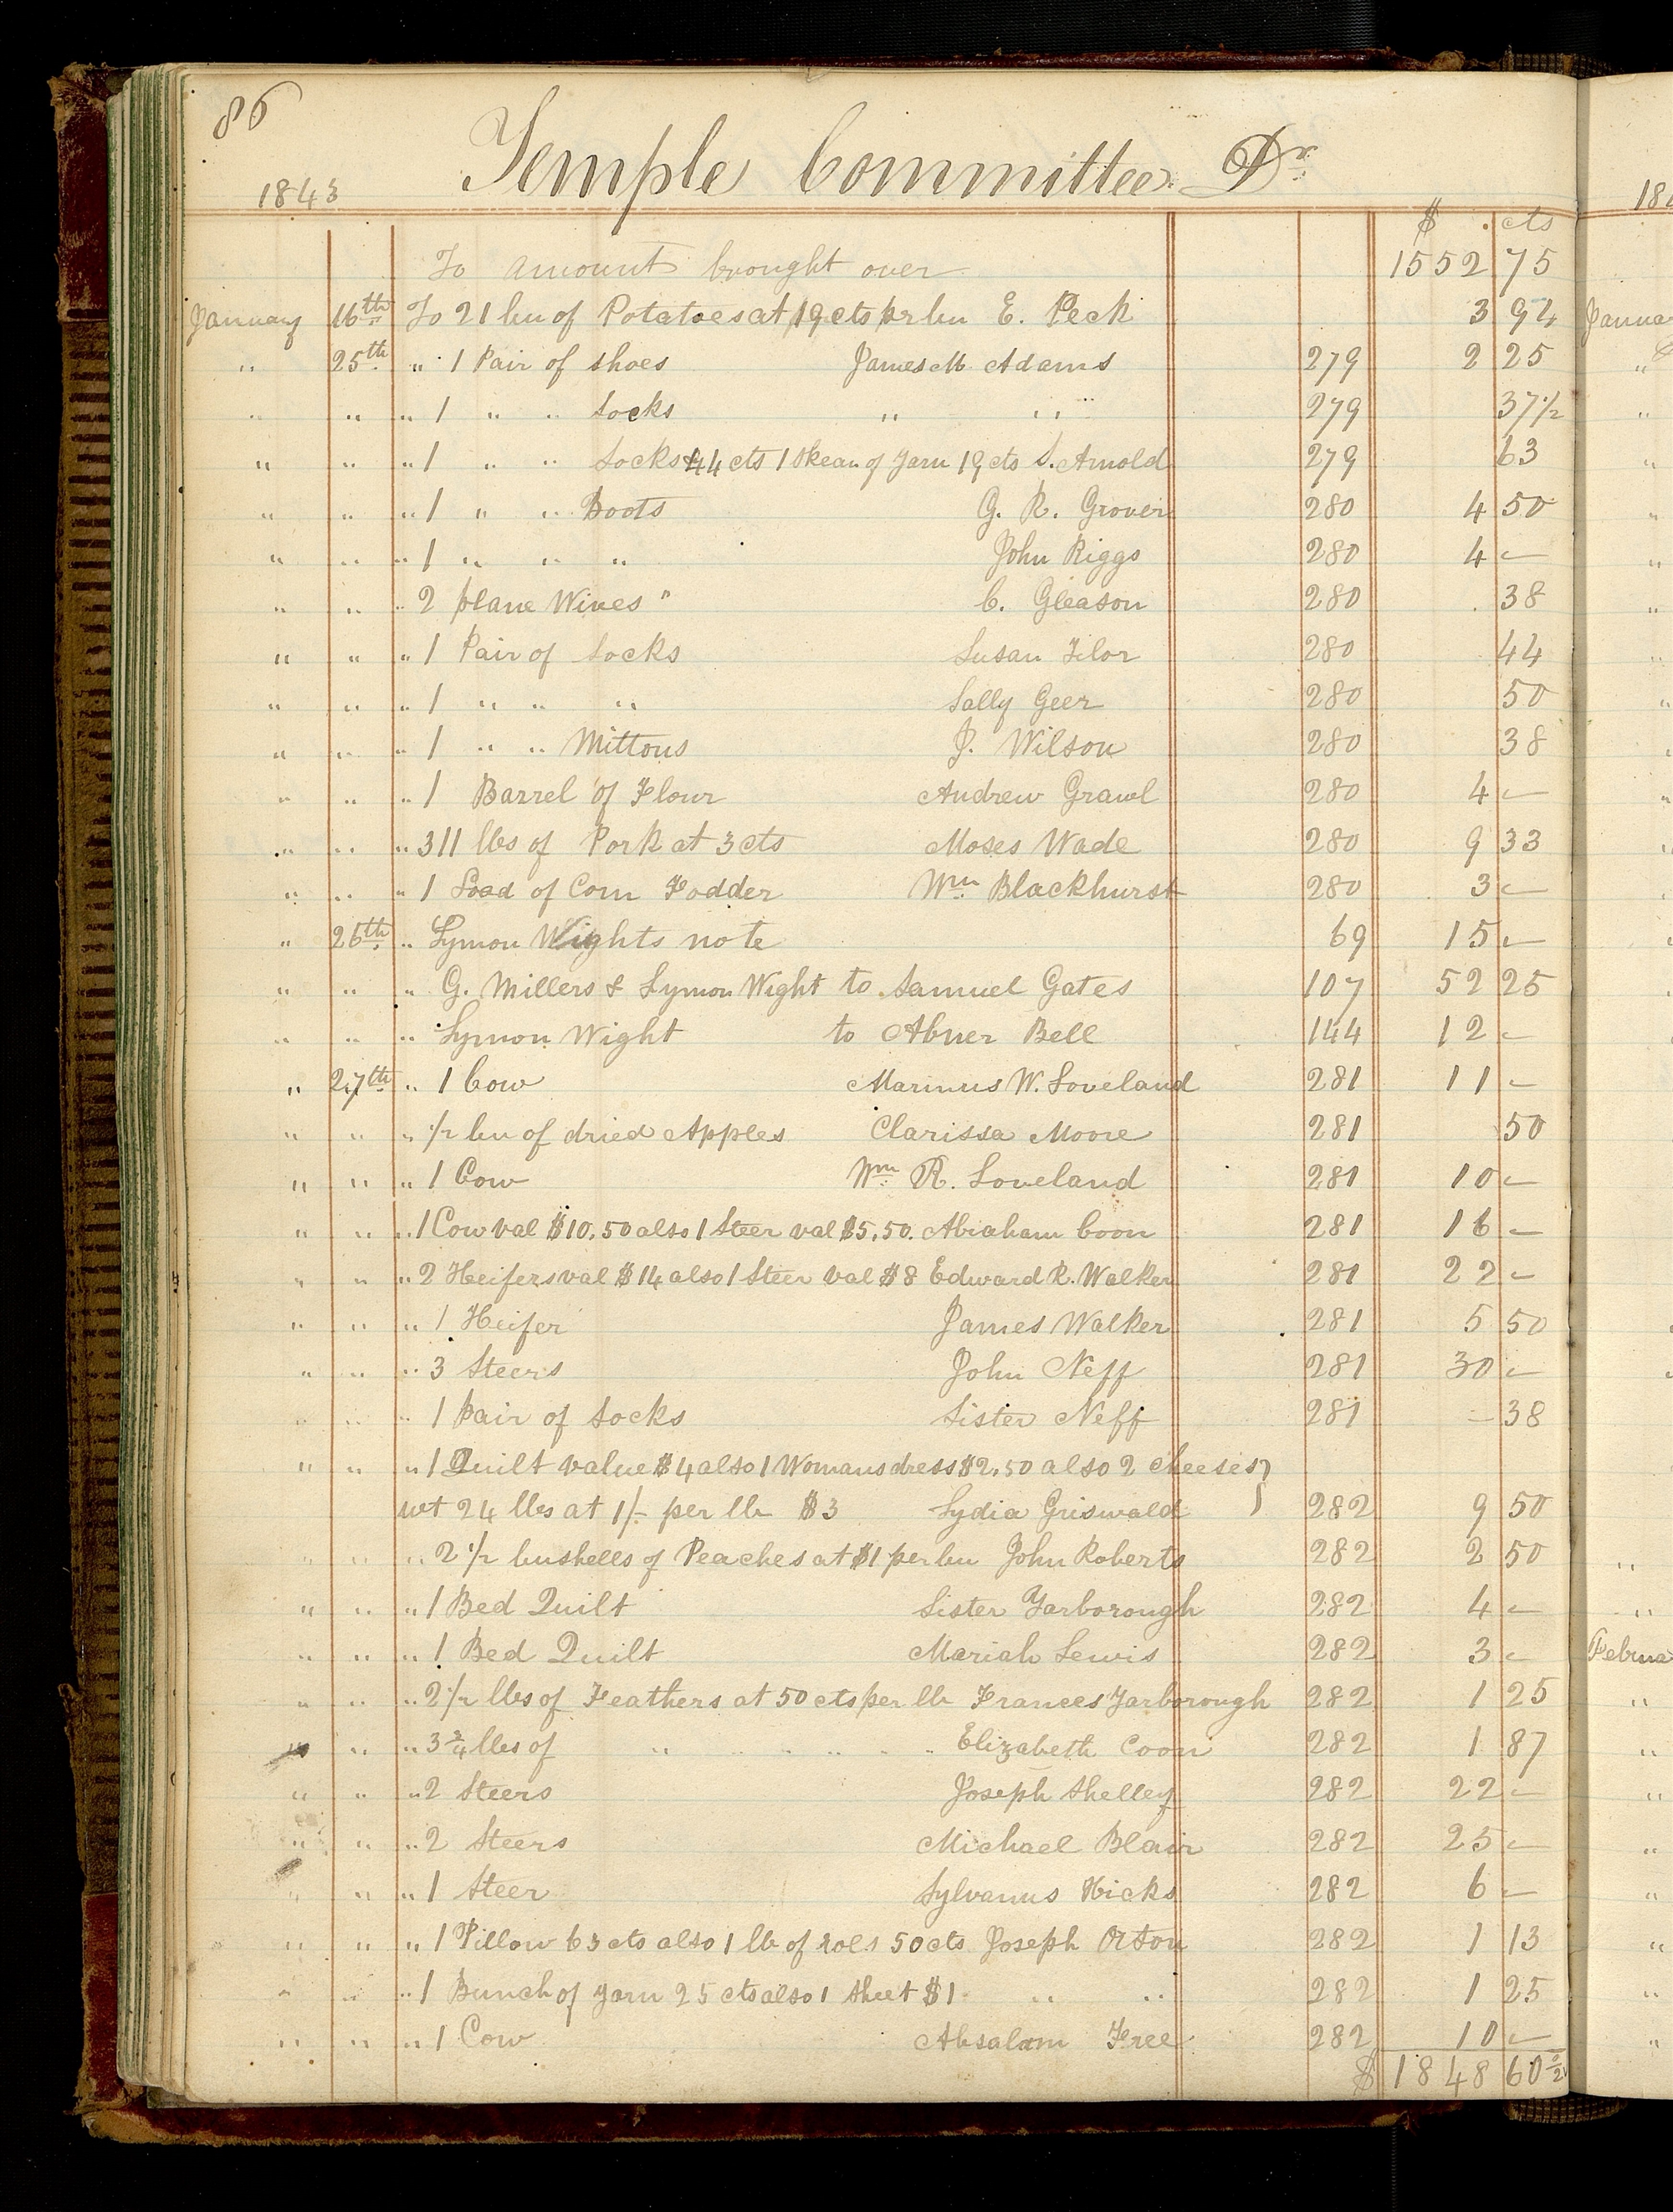 86
Temple Committee Dr.
1843
$ cts
To amount brought over 1552 75
January 16th To 21 bu of Potatoes at 19 cts pr bu E. Peck 3 94
" 25th " 1 Pair of shoes James M Adams 279 2 25
" " " 1 " " Socks " " 279 37 1/2
" " " 1 " " Socks 44 cts 1 Skean of Yarn 19 cts S. Arnold 279 63
" " " 1 " " Boots G. R. Grover 280 4 50
" " " 1 " " " John Riggs 280 4 –
" " " 2 plane Wires " C. Gleason 280 38
" " " 1 Pair of Socks Susan Filor 280 44
" " " 1 " " " Sally Geer 280 50
" " " 1 " " Mittons J. Wilson 280 38
" " " 1 Barrel of Flour Andrew Grawl 280 4 –
" " " 311 lbs of Pork at 3 cts Moses Wade 280 9 33
" " " 1 Load of Corn Fodder Wm Blackhurst 280 3 –
" 26th " Lymon Wights note 69 15 –
" " " G. Millers & Lymon Wight to Samuel Gates 107 52 25
" " " Lymon Wight to Abner Bell 144 12 –
" 27th " 1 Cow Marinus W. Loveland 281 11 –
" " " 1/2 bu of dried Apples Clarissa Moore 281 50
" " " 1 Cow Wm R. Loveland 281 10 –
" " " 1 Cow val $10.50 also 1 Steer val $5.50. Abraham Coon 281 16 –
" " " 2 Heifers val $14 also 1 Steer val $8 Edward R. Walker 281 22 –
" " " 1 Heifer James Walker 281 5 50
" " " 3 Steers John Neff 281 30 –
" " " 1 Pair of Socks Sister Neff 281 – 38
" " " 1 Quilt value $4 also 1 Womans dress $2.50 also 2 cheeses }
wt 24 lbs at 1/– per lb $3 Lydia Griswald 282 9 50
" " " 2 1/2 bushells of Peaches at $1 per bu John Roberts 282 2 50
" " " 1 Bed Quilt Sister Yarborough 282 4 –
" " " 1 Bed Quilt Mariah Lewis 282 3 –
" " " 2 1/2 lbs of Feathers at 50 cts per lb Frances Yarborough 282 1 25
" " " 3 3/4 lbs of " " " " " " Elizabeth Coon 282 1 87
" " " 2 Steers Joseph Shelley 282 22 –
" " " 2 Steers Michael Blair 282 25 –
" " " 1 Steer Sylvanus Hicks 282 6 –
" " " 1 Pillow 63 cts also 1 lb of rols 50 cts Joseph Orton 282 1 13
" " " 1 Bunch of yarn 25 cts also 1 Sheet $1 " " 282 1 25
" " " 1 Cow Absalam Free 282 10 –
$ 1848 60 1/2